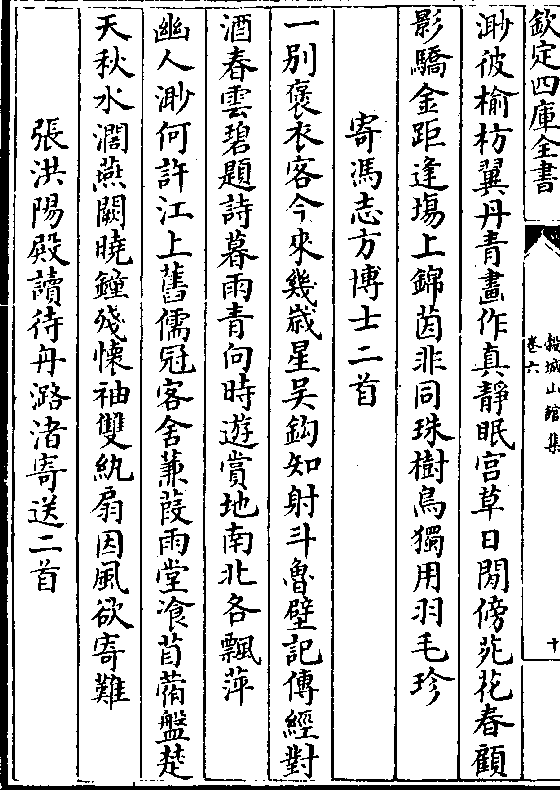 欽定四庫全書
穀城山館集
卷六
十
渺彼榆枋翼丹青畫作真靜眠宫草日閒傍苑花春顧
影驕金距逢塲上錦茵非同珠樹鳥獨用羽毛珍
寄馮志方博士二首
一别褒衣客今來幾歲星吴鈎知射斗魯壁記傳經對
酒春雲碧題詩暮雨青向時遊賞地南北各飄萍
幽人渺何許江上舊儒冠客舍蒹葭雨堂飡苜蓿盤楚
天秋水濶燕闕曉鐘殘懷袖雙紈扇因風欲寄難
張洪陽殿讀待丹潞渚寄送二首